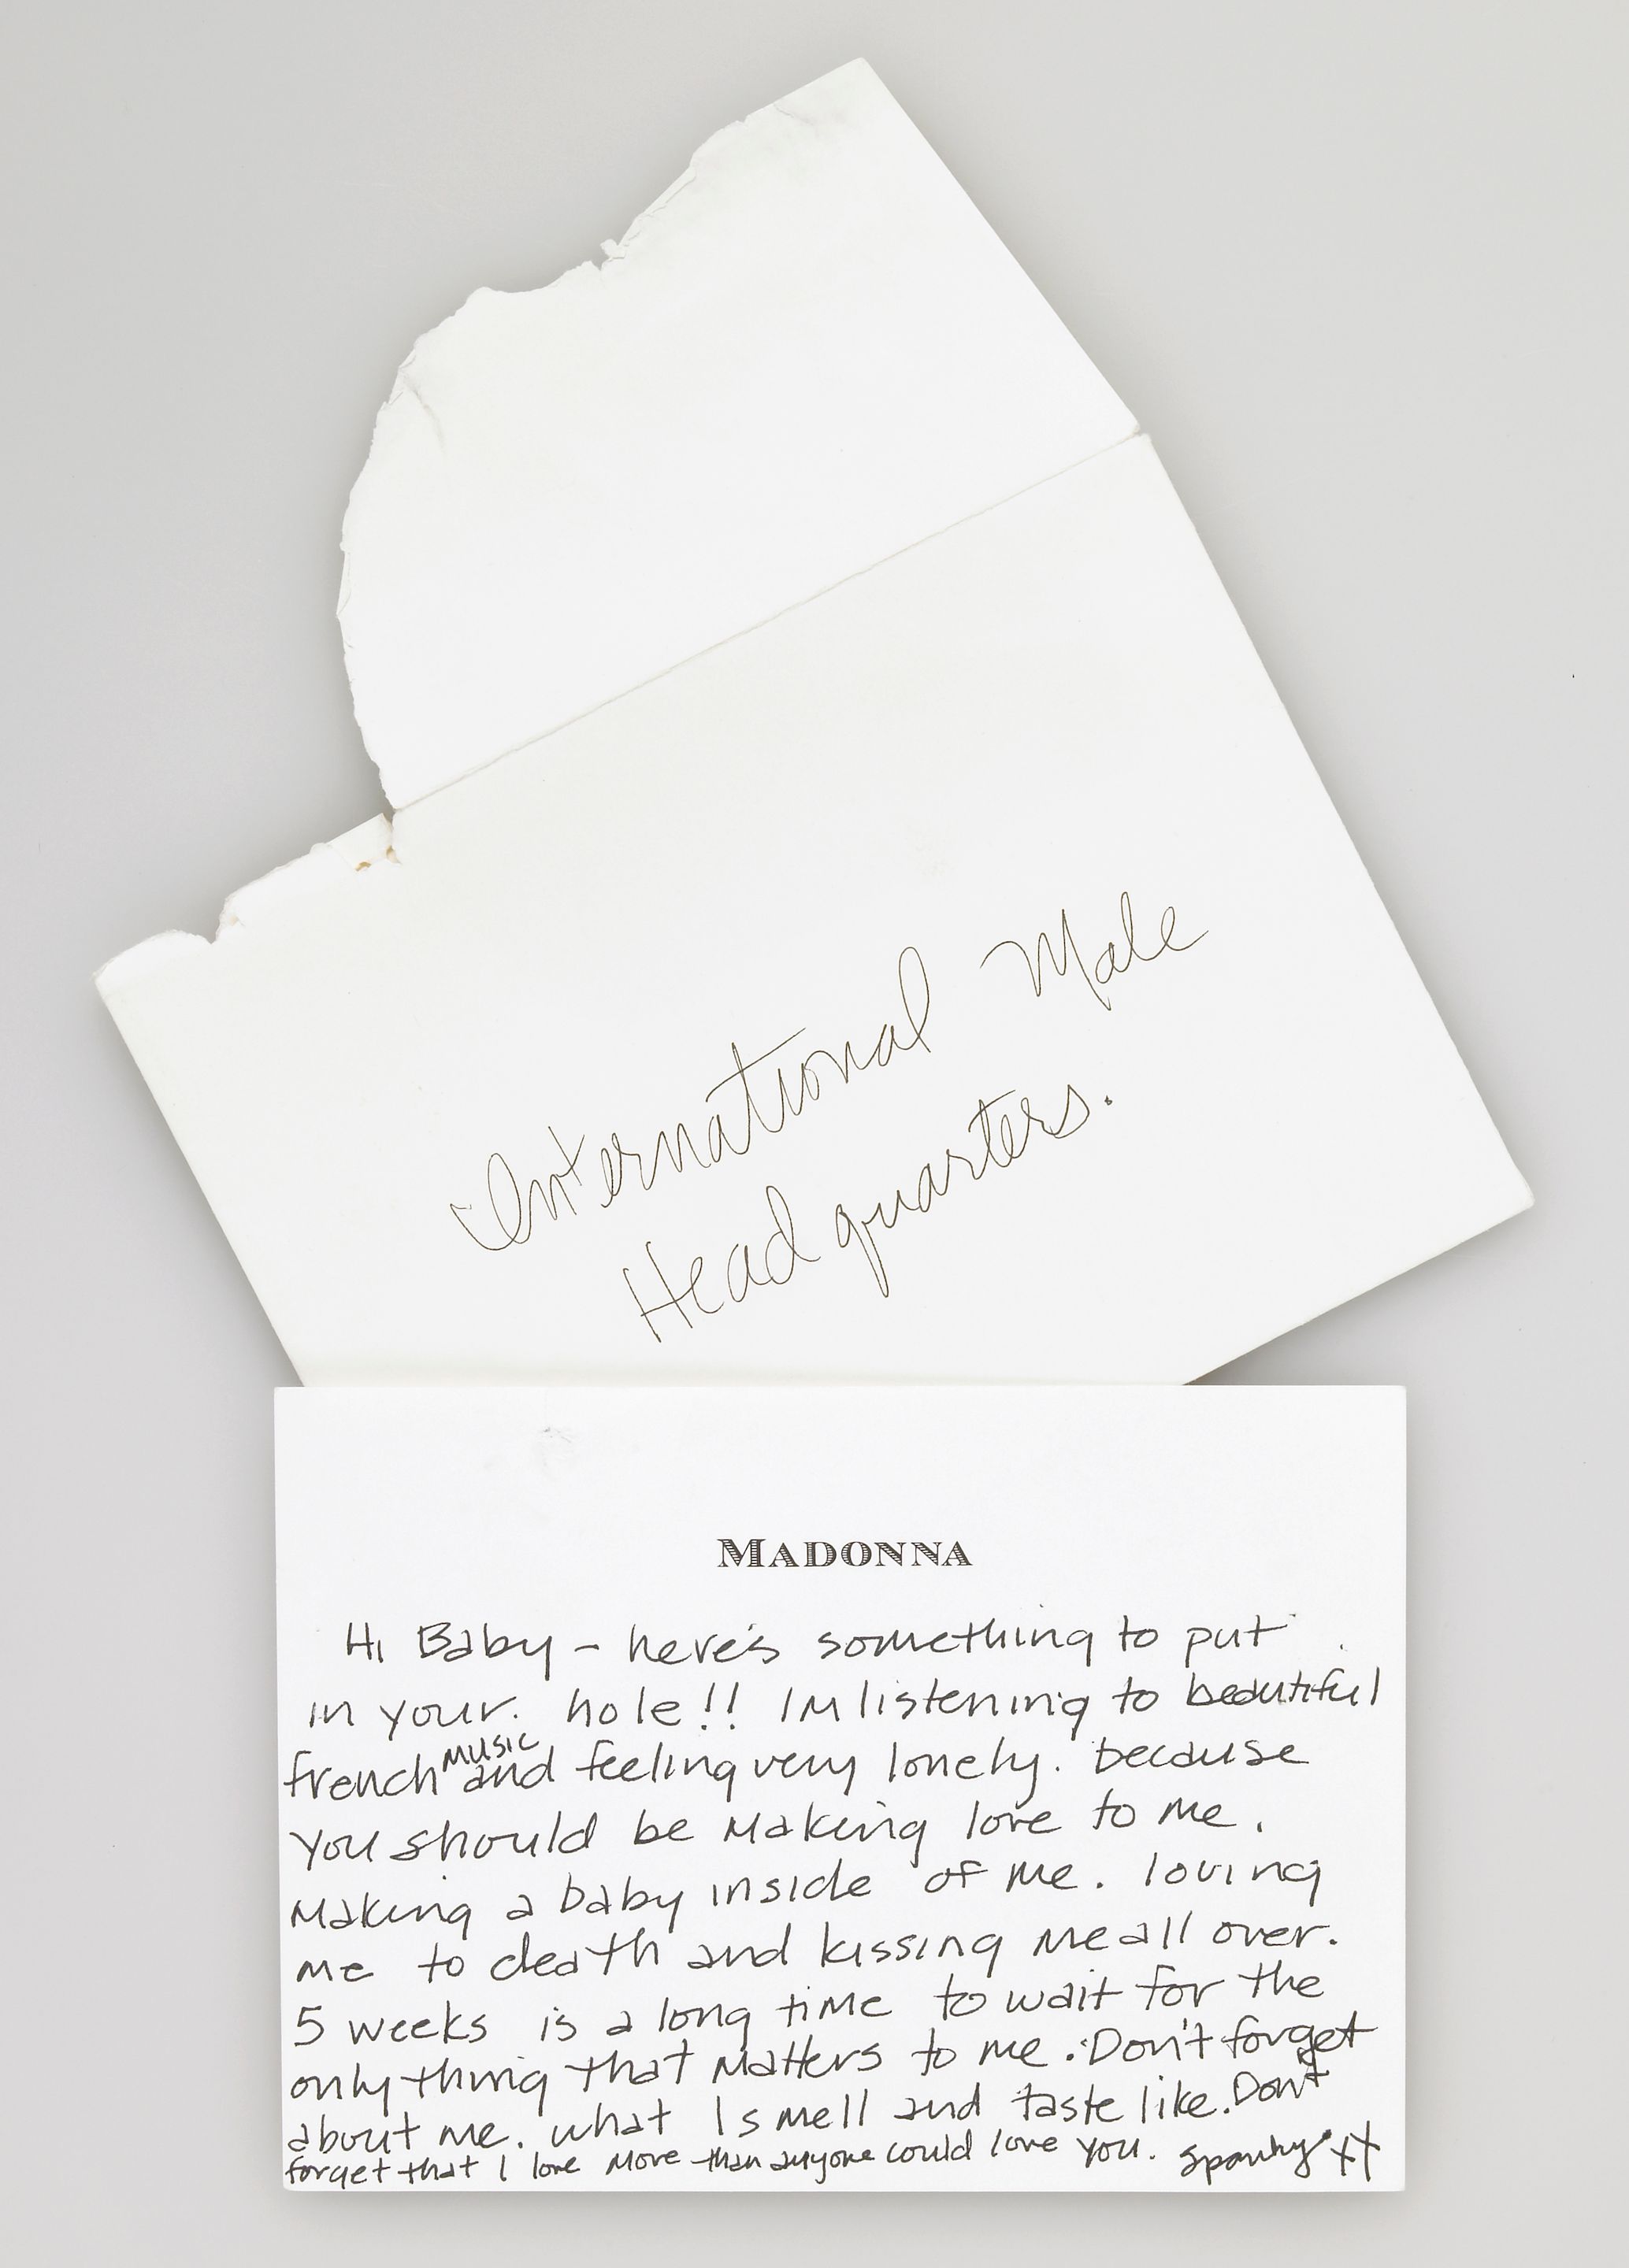 International Male
Headquarters.
MADONNA
Hi Baby - here's something to put
in your. hole!! Im listening to beautiful
french music and feeling very lonely. because
you should be making love to me.
making a baby inside of me. loving
me to death and kissing me all over.
5 weeks is a long time to wait for the
only thing that matters to me. Don't forget
about me. what I smell and taste like. Don't
forget that I love more than anyone could love you. Spanky xx